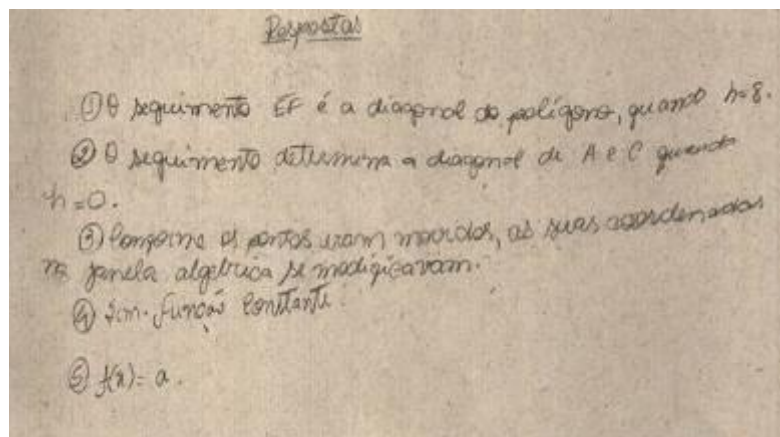 Respostas
① O seguimento EF é a diagonal do polígono, quando h=8.
② O seguimento determina a diagonal de A e C quando
h=0.
③ Conforme os pontos eram movidos, as suas coordenadas
na janela algébrica se modificavam.
④ Sim. Função Constante.
⑤ f(x)= a.